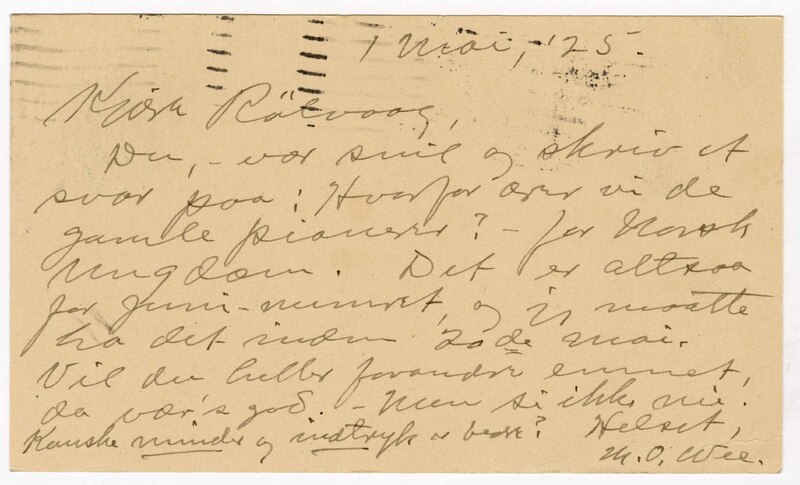 1 Mai, '25.
Kjære Rölvaag,
Du, - vær snil og skriv et
svar paa: Hvorfor ærer vi de
gamle pionerer? - for Norsk
Ungdom. Det er altsaa
for juni-numret, og jeg maatte
ha det inden 20de mai.
Vil du heller forandre emnet,
da vær's god. - Men si ikke nei.
Kanske minder og indtryk er bedre? Helset,
M. O. Wee.